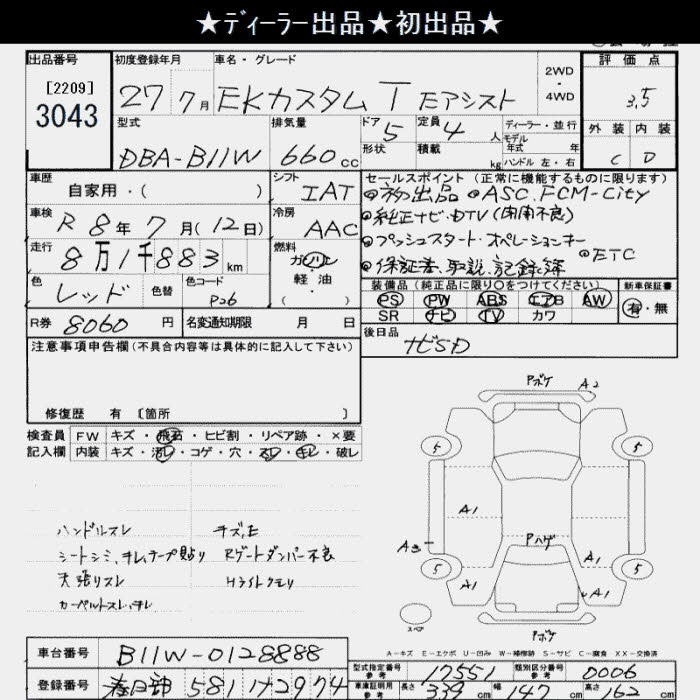 ★ディーラー出品★初出品★
出品番号
[2209]
3043
初度登録年月
27 7月
車名・グレード
EKカスタム T Eアシスト
2WD
・
4WD
評価点
3.5
外装 内装
C D
型式
DBA-B11W
排気量
660cc
ドア 5
形状
定員 4人
積載 kg
ディーラー・並行
モデル年式 年
ハンドル 左・右
車歴
自家用・( )
シフト
IAT
車検
R 8年 7月(12日)
冷房
AAC
走行
8万1千883km
燃料
ガソリン
軽・油
( )
色
レッド
色替
色コード
P26
R券 8060円
名変通知期限 月 日
セールスポイント (正常に機能するものに限ります)
◎初出品 ◎ASC.FCM-City
◎純正ナビ・DTV(開閉不良)
◎プッシュスタート・オペレーションキー
◎保証書、取説、記録簿 ◎ETC
装備品(純正品に限り○をつけてください)
PS PW ABS エアB AW
SR ナビ TV カワ
新車保証書
有・無
後日品
ナビSD
注意事項申告欄(不具合内容等は具体的に記入して下さい)
修復歴 有 〔箇所 〕
検査員
記入欄
FW キズ・飛石・ヒビ割・リペア跡・×要
内装 キズ・汚レ・コゲ・穴・スレ・キレ・破レ
ハンドルスレ
シートシミ、キレ、テープ貼り
天張りスレ
カーペットスレ、キレ
キズ、E
Rゲートダンパー不良
Hライトクモリ
Pボケ
A2
5
5
A1
A3
Pハゲ
5
5
A1
A1
スペア
Pボケ
A-キズ E-エクボ U-凹み W-補修跡 S-サビ C-腐食 XX-交換済
車台番号 B11W-0128888
登録番号 春日部 581
型式指定番号 参考 17551
類別区分番号 参考 0006
車庫証明用 参考
長さ 339cm
幅 147cm
高さ 162cm